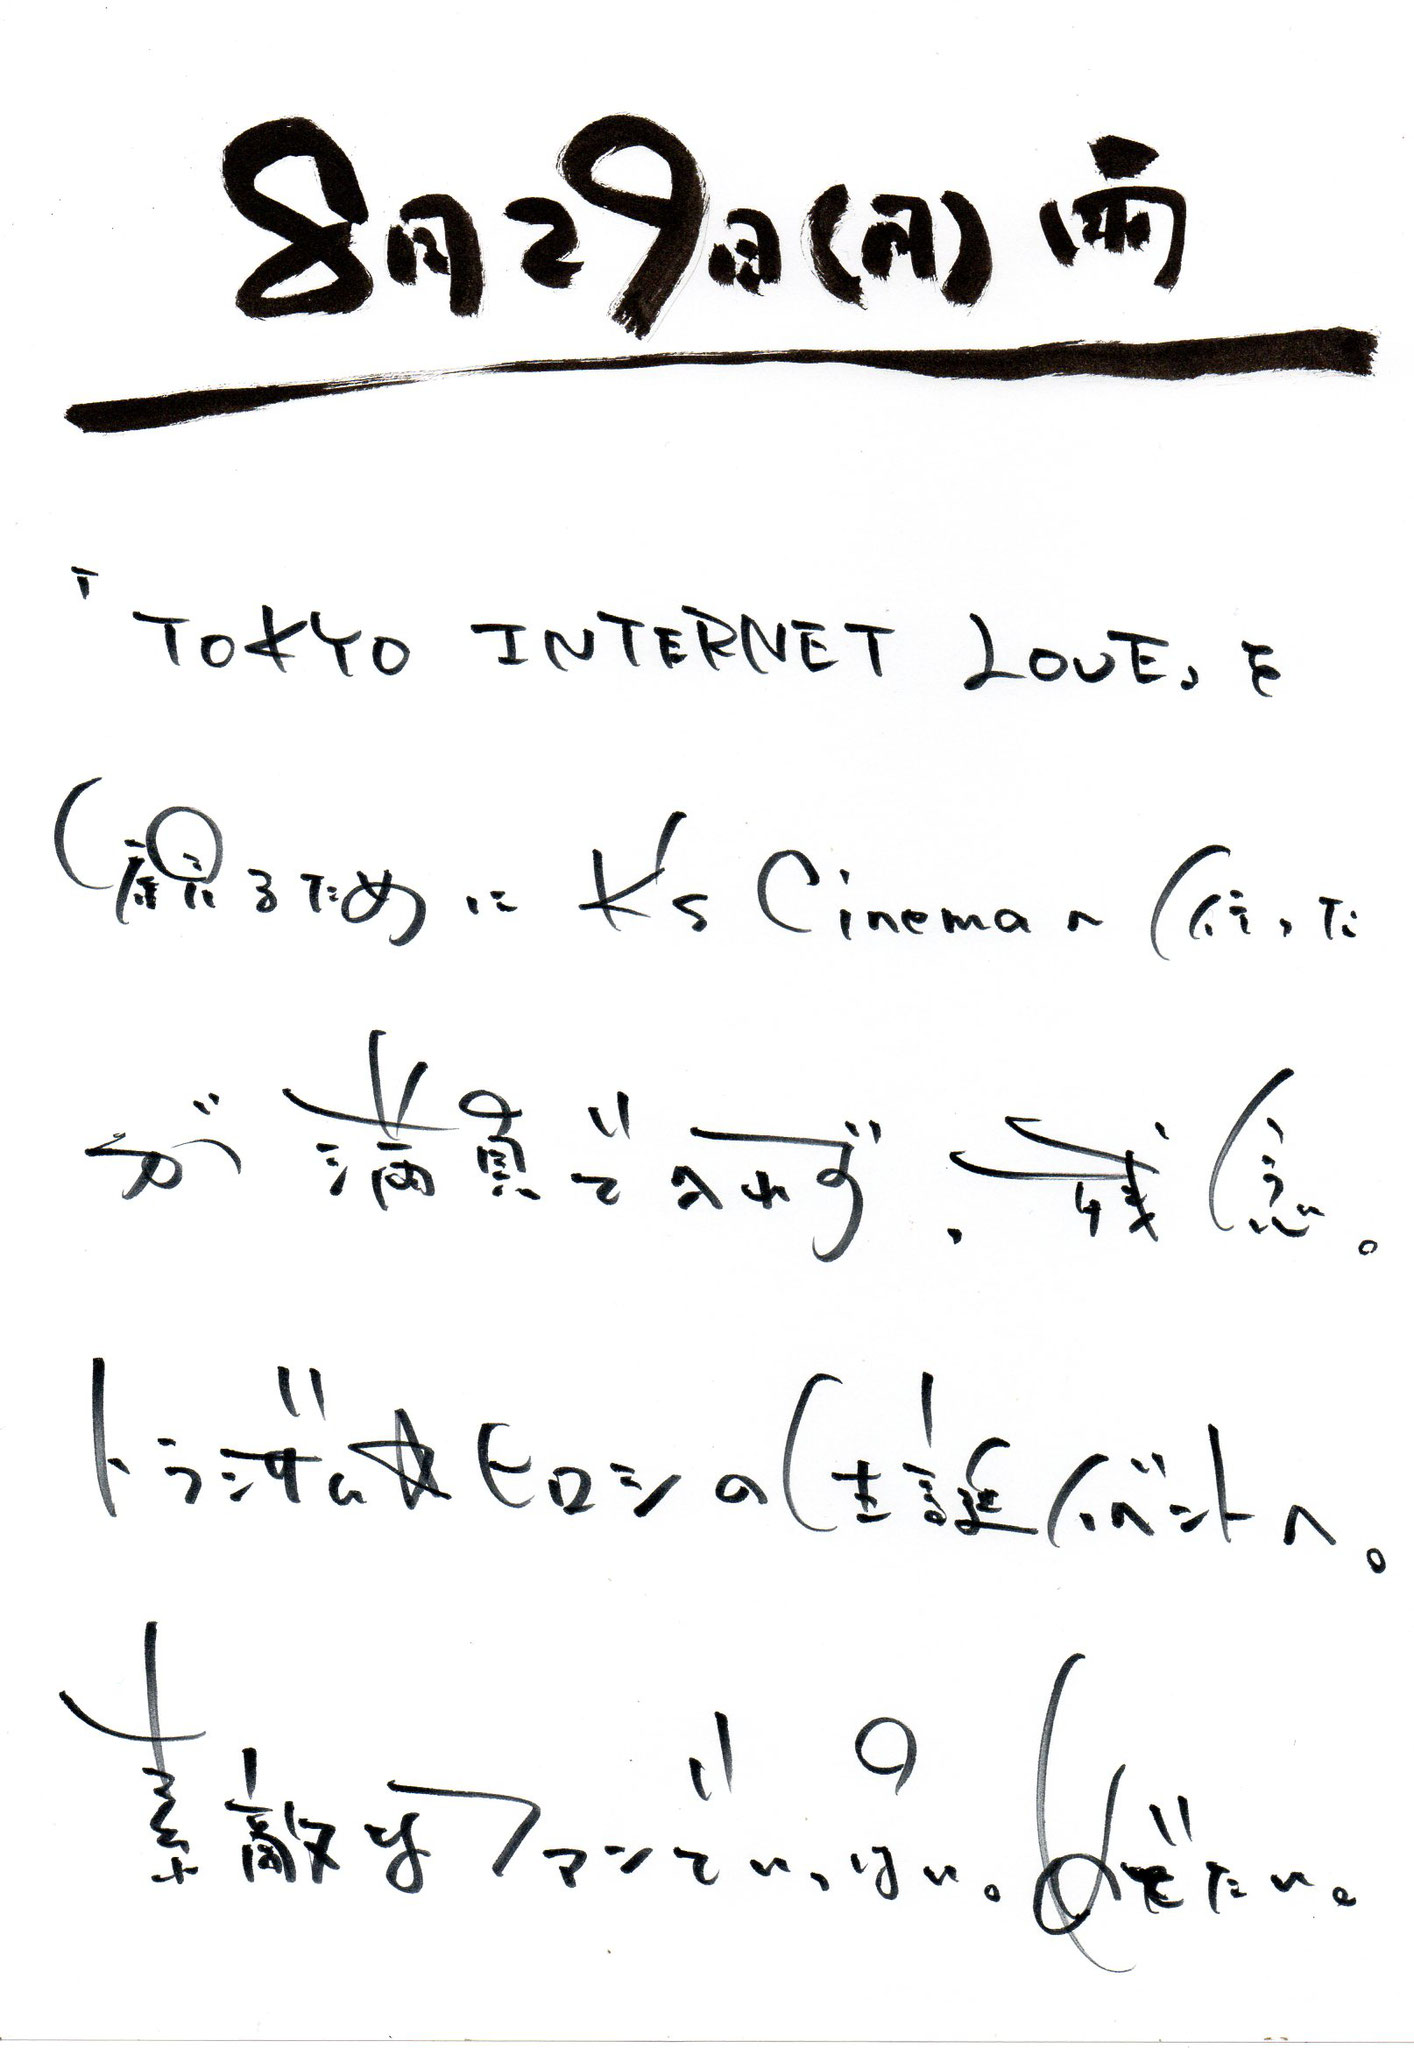 8月29日(月)雨
「TOKYO INTERNET LOVE」を
観るためにK's Cinemaへ行った
が満員で入れず、残念。
トラジ木ヒロシの生誕イベントへ。
素敵なファンでいっぱい。めでたい。